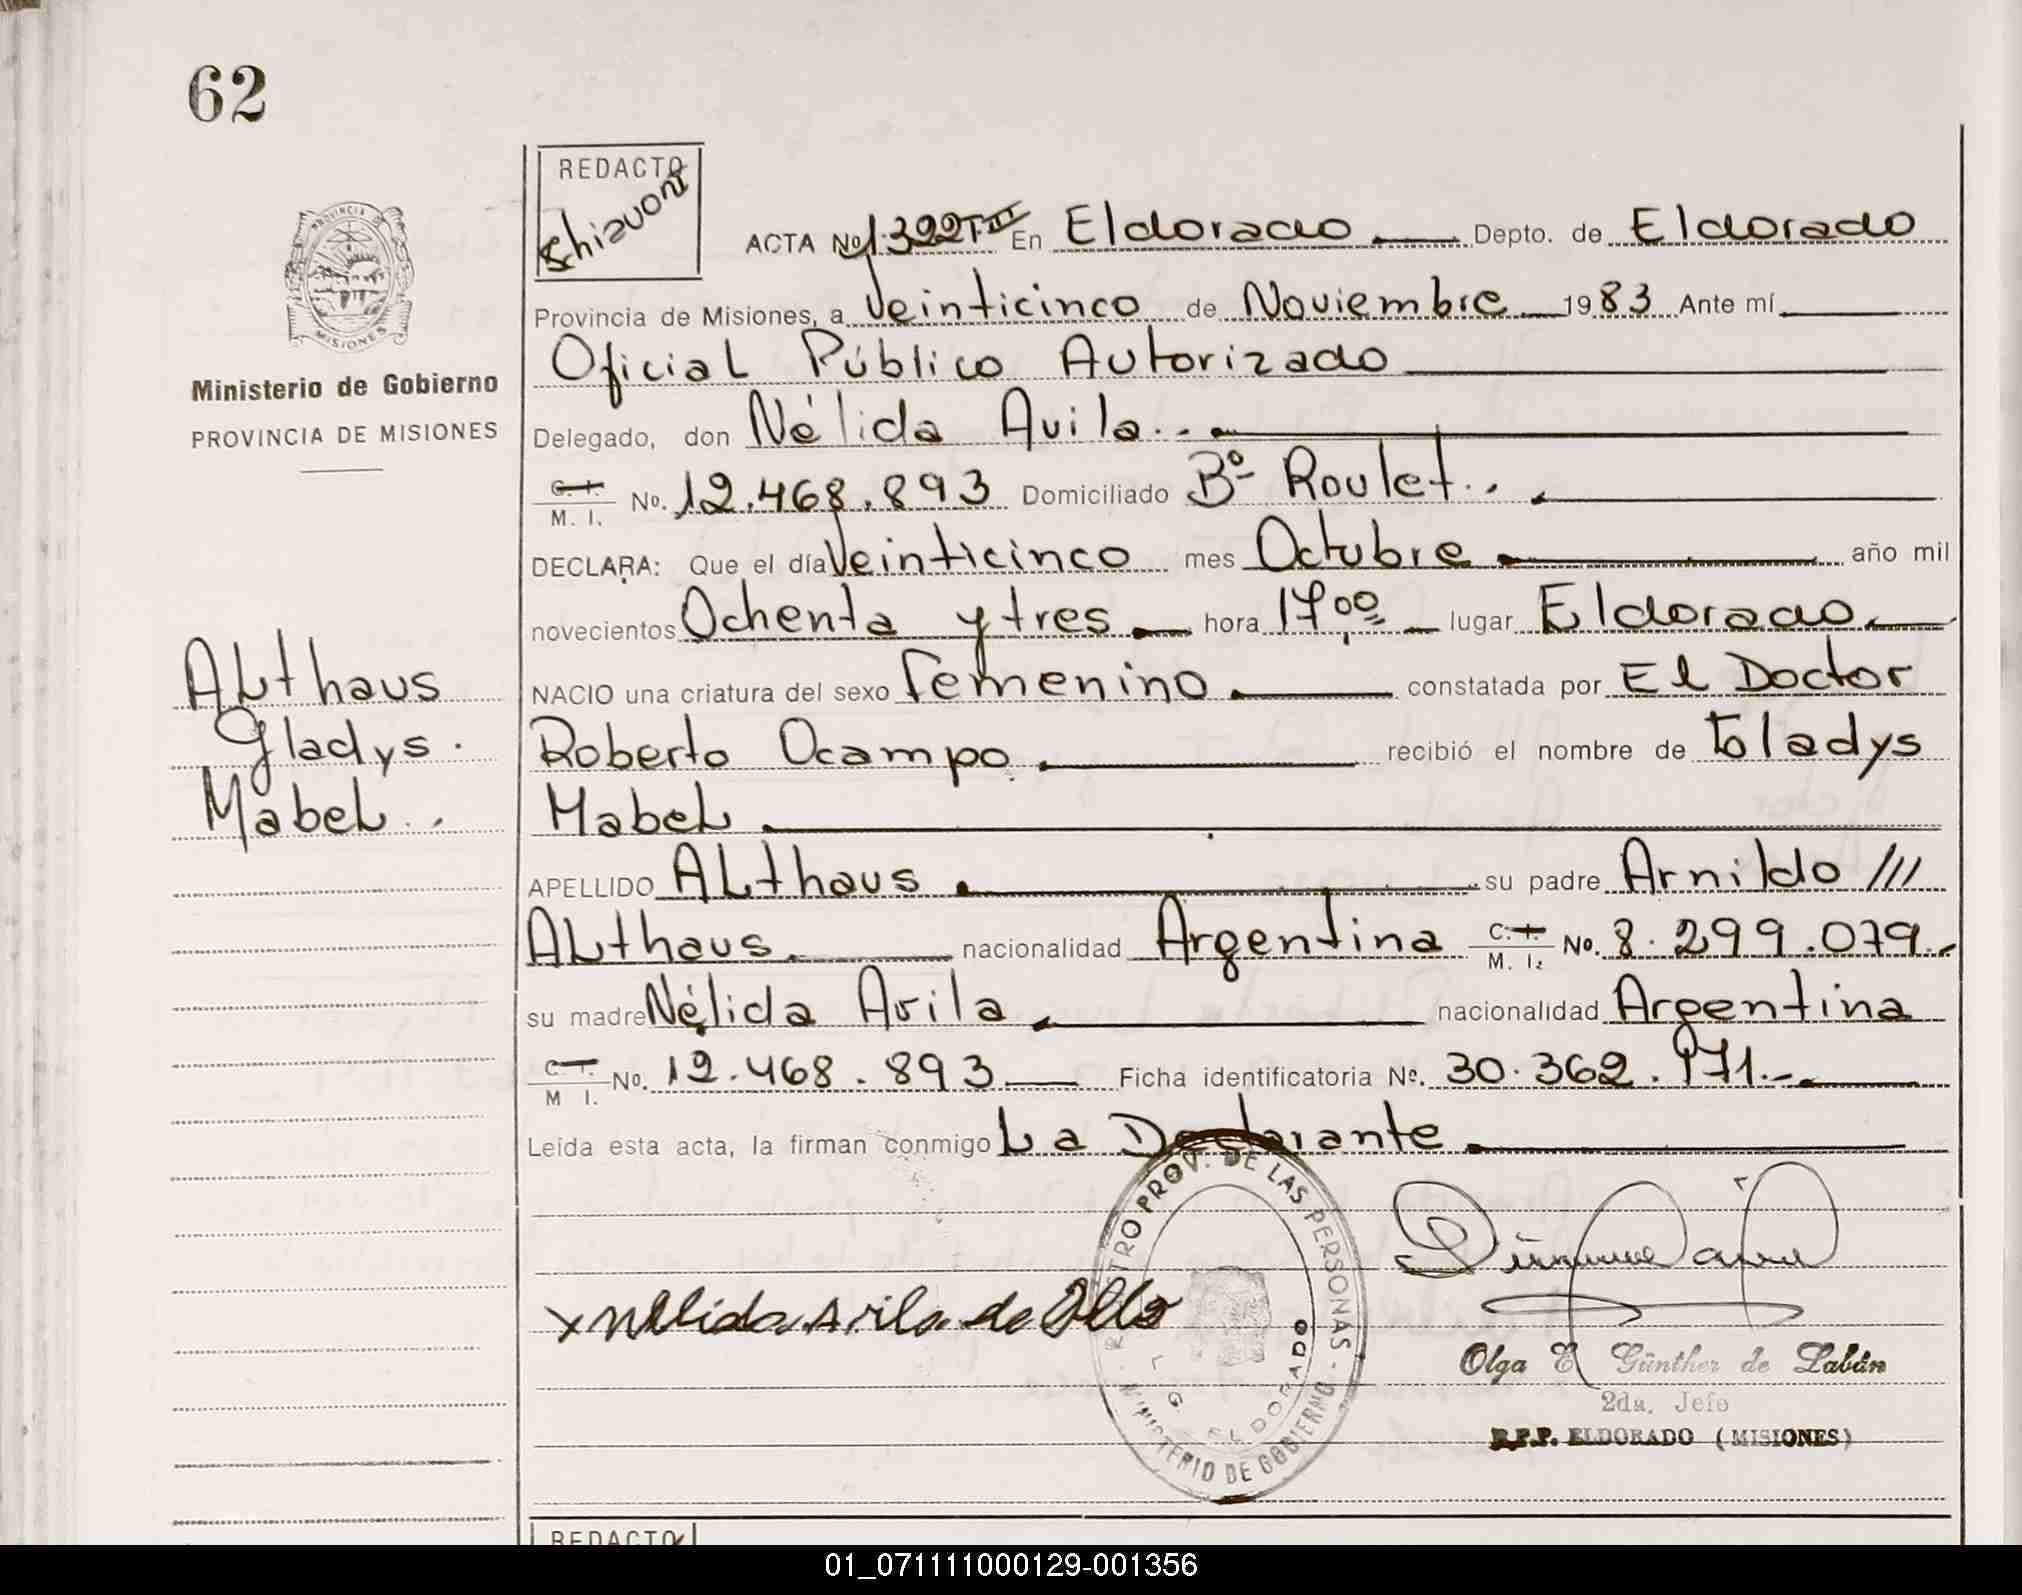 62
REDACTO
Schiavoni
ACTA No 1.322 T. III En Eldorado Depto. de Eldorado
Provincia de Misiones, a Veinticinco de Noviembre 1983 Ante mí
Oficial Público Autorizado
Delegado, don Nélida Avila
C. I. M. I. No. 12.468.893 Domiciliado Bº Roulet
DECLARA: Que el día Veinticinco mes Octubre año mil
novecientos Ochenta y tres hora 17 00 lugar Eldorado
NACIO una criatura del sexo Femenino constatada por El Doctor
Roberto Ocampo recibió el nombre de Gladys
Mabel
APELLIDO Althaus su padre Arnildo ///
Althaus nacionalidad Argentina C. I. M. I. No. 8.299.079.
su madre Nélida Avila nacionalidad Argentina
C. I. M I. No. 12.468.893 Ficha identificatoria No. 30.362.971.-
Leída esta acta, la firman conmigo La Declarante
PROVINCIA DE
MISIONES
Ministerio de Gobierno
PROVINCIA DE MISIONES
Althaus
Gladys.
Mabel
x Nélida Avila de
REGISTRO PROV. DE LAS PERSONAS
MINISTERIO DE GOBIERNO
ELDORADO
Olga E. Günther de Labán
2da. Jefe
R.P.P. ELDORADO (MISIONES)
REDACTO
01_071111000129-001356